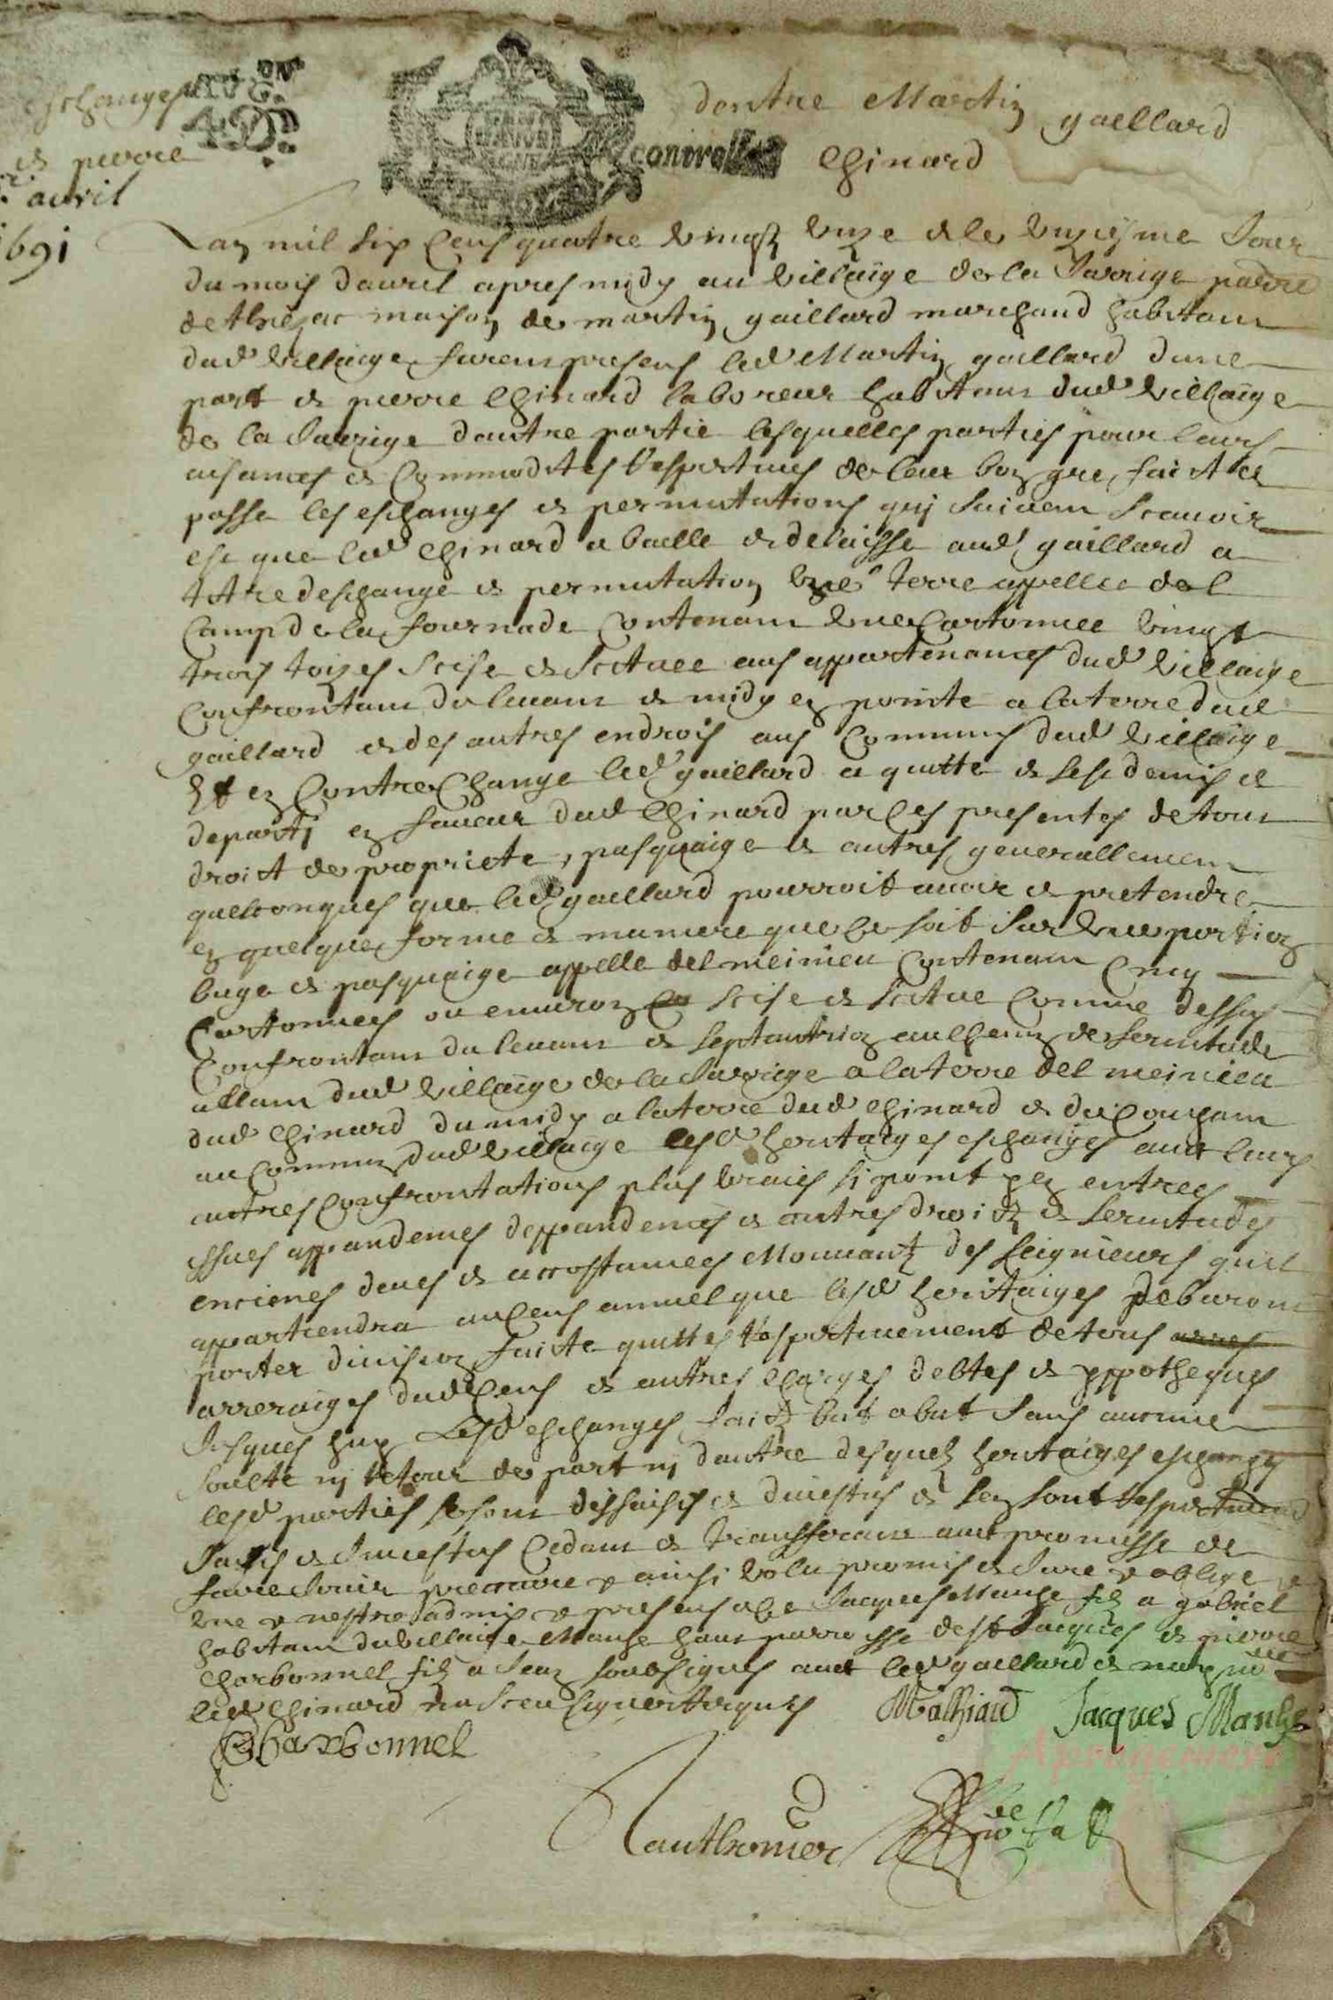 eschanges dantre Martin gaillard
et pierre Chinard
avril
1691
controlle
Lan mil six cens quatre vingtz unze et le unziesme Jour
du mois dauril apres midy au villaige de la Sauvige parre
de maison de martin gaillard marchand habitant
dud villaige furent presens led Martin gaillard dune
part et pierre Chinard laboreur habitant dud villaige
de la Sauvige dautre partie lesquelles parties pour leurs
aisances et Commodites respectives de leur bon gre, fait et
passe les eschanges et permutations quj suivent Scavoir
est que led Chinard a baille et delaisse aud gaillard a
titre deschange et permutation une terre appellee del
Camp de la fournade Contenant une Cartonnee vingt
trois toizes Scise et Scituee aus appartenances dud villaige
Confrontant du levant et midy en pointe a la terre dud
gaillard et des autres endrois aus Communs dud villaige
Et en Contreschange led gaillard a quitte et sest demis et
departj en faveur dud Chinard par Ces presentes de tout
droict de propriete, pasquaige et autres generallement
quelconques que led gaillard pourroit avoir et pretendre
en quelque forme et maniere que Ce soit Sur une portion
buge et pasquaige appelle del meinieu Contenant Cinq
Cartonnees ou environ Scise et Scitue Comme dessus
Confrontant du levant et septantrion au Chemin de servitude
allant dud villaige de la Sauvige a la terre del meinieu
dud Chinard du midy a la terre dud Chinard et du Couchant
au Commun dud villaige lesd heritaiges eschanges avec leurs
autres Confrontations plus vraies si point y en entrees
issues appandences deppandences et autres droitz et servitudes
encienes deues et accostumees Mouvantz des seigneurs quil
appartiendra au Cens annuel que lesd heritaiges debvront
porter division faite quittes respectivement de tous
arreraiges dud Cens et autres Charges debtes et yppotheques
Jusques huy Lesd eschanges faitz but a but Sans aucune
soulte nj retour de part nj dautre desquelz heritaiges eschanges
lesd parties se sont dessaisis et divestus et sen sont respectivement
Saisis et Investus Cedant et transferant avec promesse de
faire Jouir precaire & ainsi volu promis et Jure & oblige &
une & nestre admis & presens a Ce Jacques Manhe filz a gabriel
habitant du villaige Manhe haut parroisse de st Jacques et pierre
Charbonnel filz a Jean soubsignes avec led gaillard et
led Chinard na Sceu signer requis
Mathiaud Jacques Manhe
Charbonnel
Aprogemere
Lauthonier